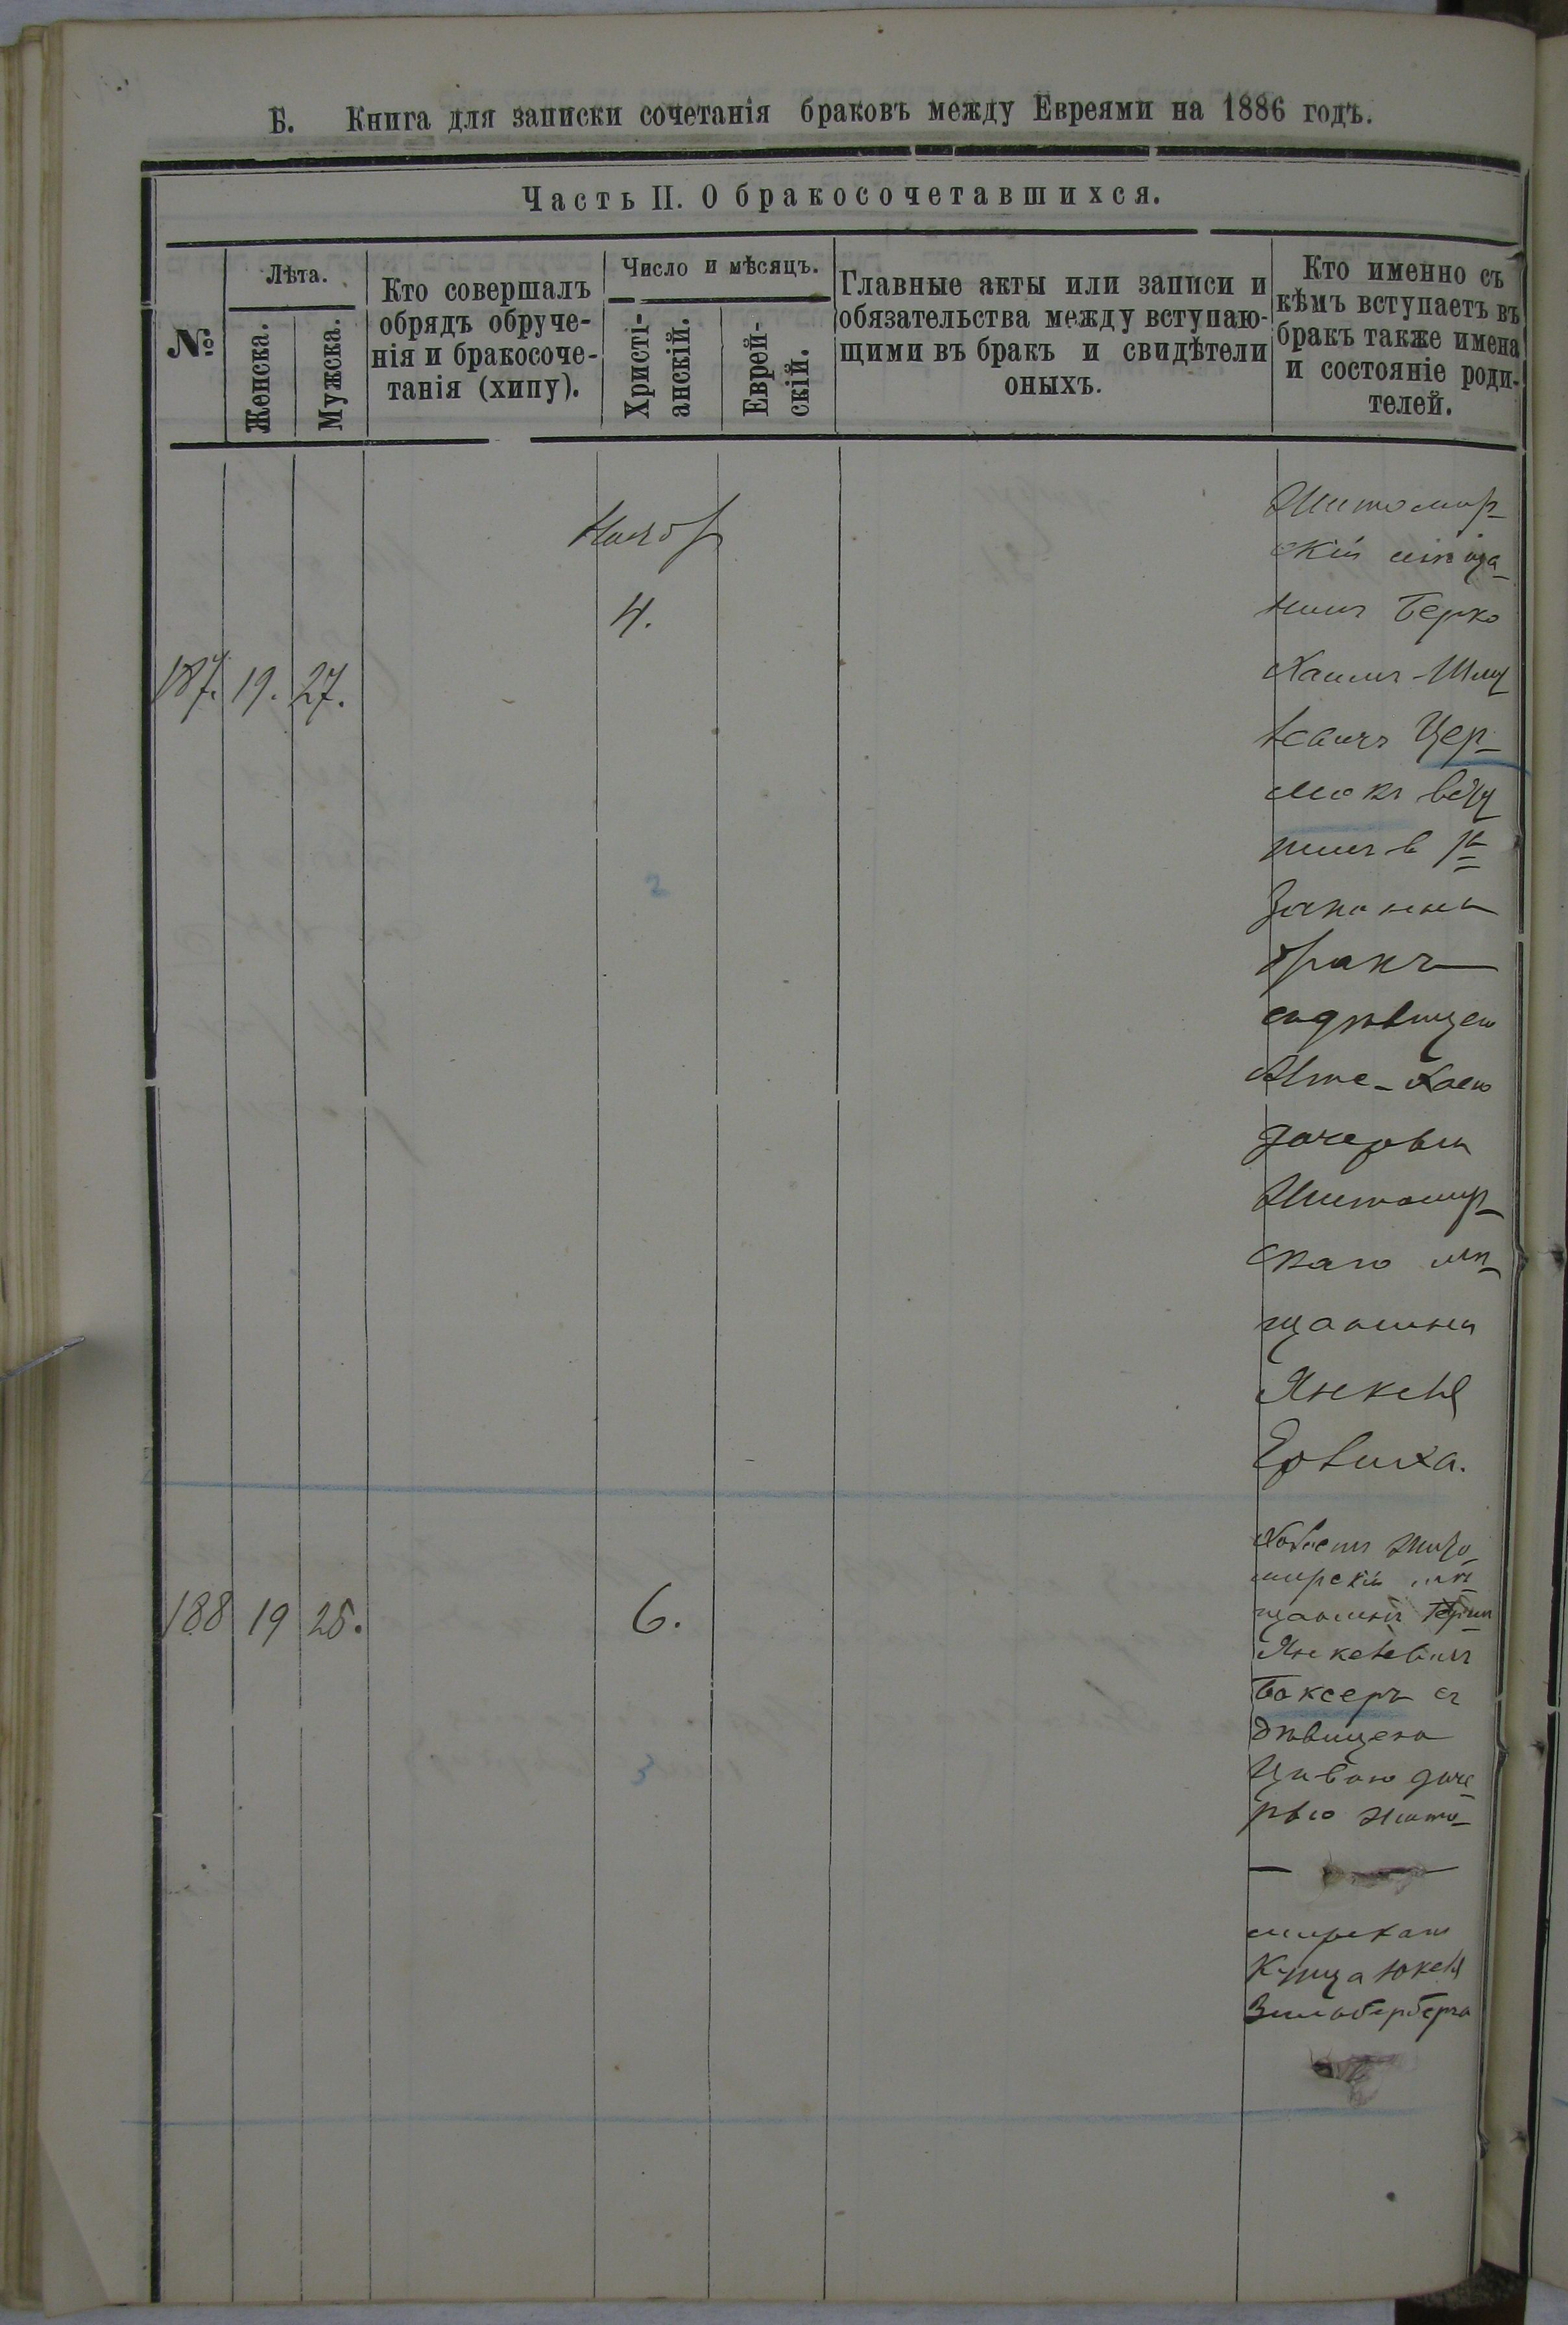 Б. Книга для записки сочетанія браковъ между Евреями на 1886 годъ.
Часть II. О бракосочетавшихся.
№
Лѣта.
Женска.
Мужска.
Кто совершалъ
обрядъ обруче-
нія и бракосоче-
танія (хипу).
Число и мѣсяцъ.
Христі-
анскій.
Еврей-
скій.
Главные акты или записи и
обязательства между вступаю-
щими въ бракъ и свидѣтели
оныхъ.
Кто именно съ
кѣмъ вступаетъ въ
бракъ также имена
и состояніе роди-
телей.
187. 19. 27.
Нояб
4.
2
Житомир-
скій мѣща-
нинъ Берко
Хаимъ-Шлу
левичъ Цер-
мокъ
в 1й
Законный
бракъ
съдѣвицею
Хаею
дочерью
Житомир-
скаго мѣ-
щанина
Янкеля
188 19 25.
6.
3
Холостъ Жито
мирскій мѣ-
щанинъ
Янкелевичъ
Боксеръ съ
дѣвицею
Циваю доче
рью Жито-
мирскаго
Купца Юкеля
Зильберберга